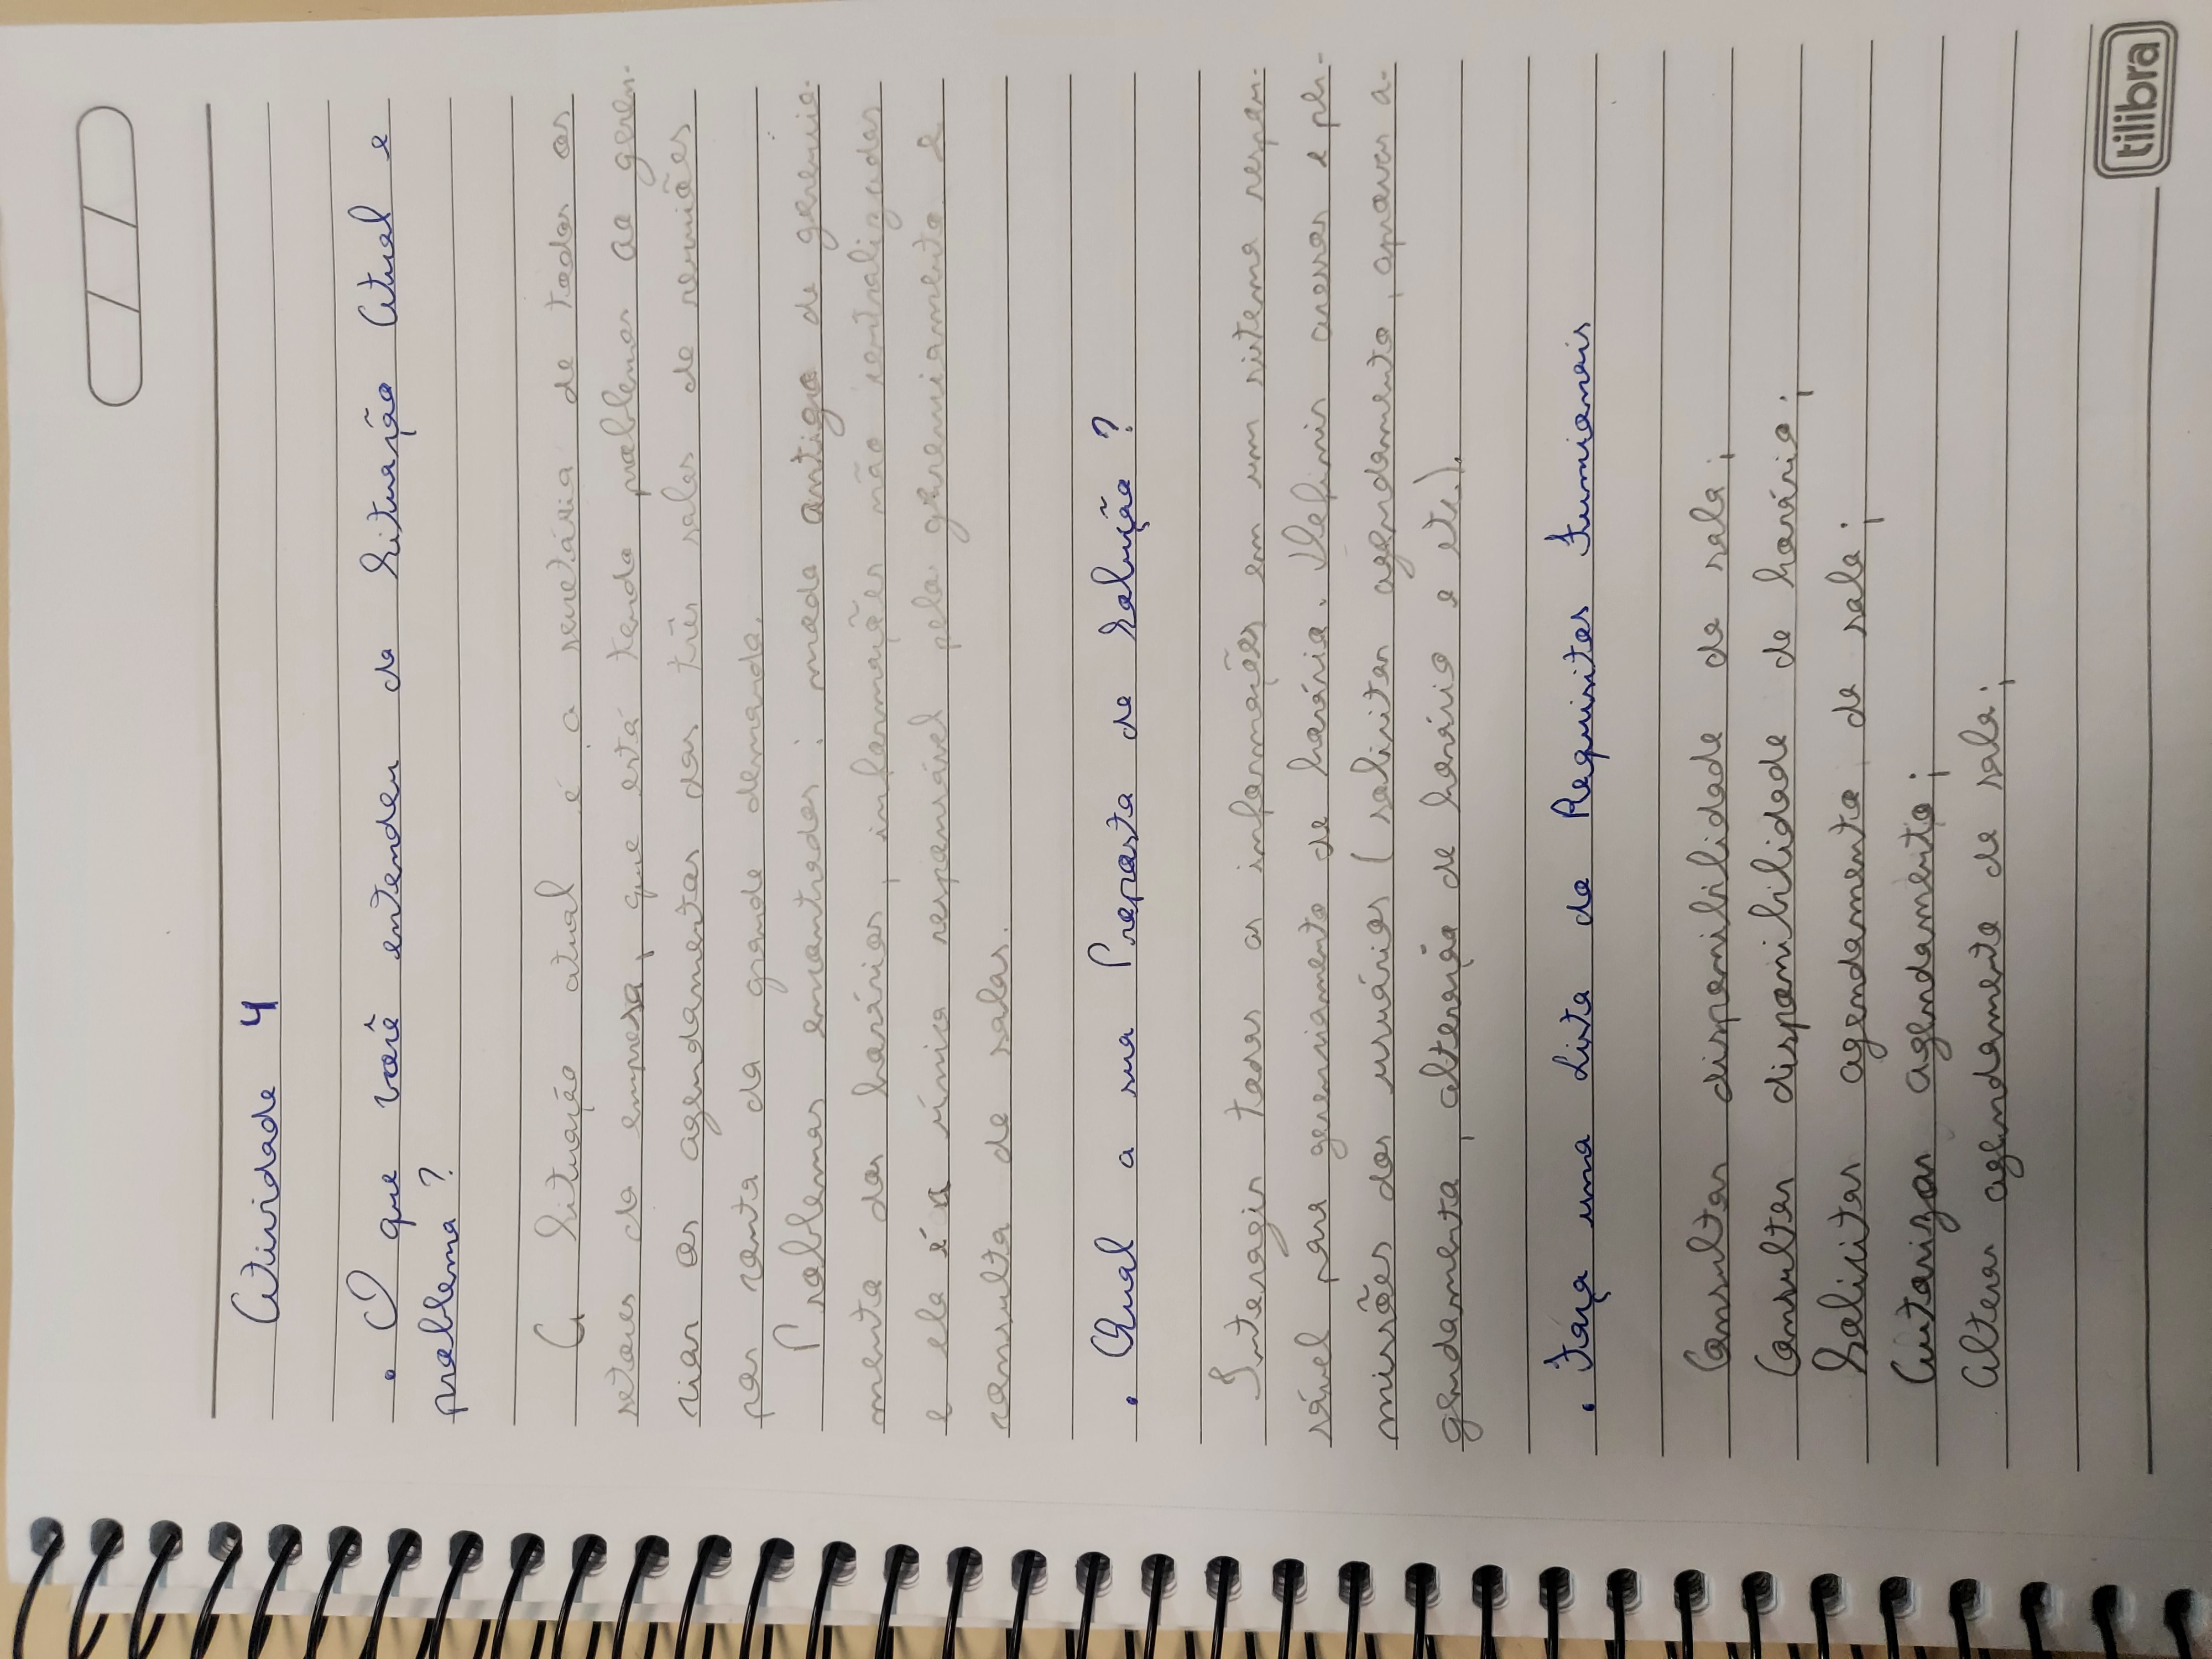 Atividade 4
. O que você entendeu da Situação Atual e
problema?
A Situação atual é a secretária de todos os
setores da empresa, que está tendo problemas ao geren-
ciar os agendamentos das três salas de reuniões
por conta da grande demanda.
Problemas encontrados: modo antigo de gerencia-
mento dos horários, informações não centralizadas
e ela é a única responsável pelo gerenciamento e
consulta de salas.
. Qual a sua Proposta de Solução?
Interagir todas as informações em um sistema respon-
sável para gerenciamento de horário. Definir acessos e per-
missões dos usuários (solicitar agendamento, aprovar a-
gendamento, alteração de horário e etc.).
. Faça uma Lista de Requisitos Funcionais
Consultar disponibilidade de sala;
Consultar disponibilidade de horário;
Solicitar agendamento de sala;
Autorizar agendamento;
Alterar agendamento de sala;
tilibra